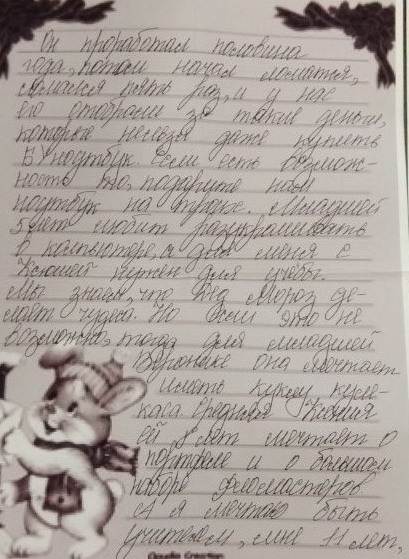 Он проработал половина
года, потом начал ломатся,
ломался пять раз, и у нас
его отобрали за такие деньги,
которые нельзя даже купить
БУ ноутбук. Если есть возмож-
ность то, подарите нам
ноутбук на троже. Младшей
5 лет любит разукрашивать
в компьютере, а для меня с
Ксюшей нужен для учёбы.
Мы знаем, что Дед Мороз де-
лает чудеса. Но если это не
возможно, тогда для младшей
Веронике она мечтает
иметь куклу
Средняя Ксения
ей 8 лет мечтает о
портфеле и о большом
наборе фломастеров
А я мечтаю быть
учителем, мне 11 лет,